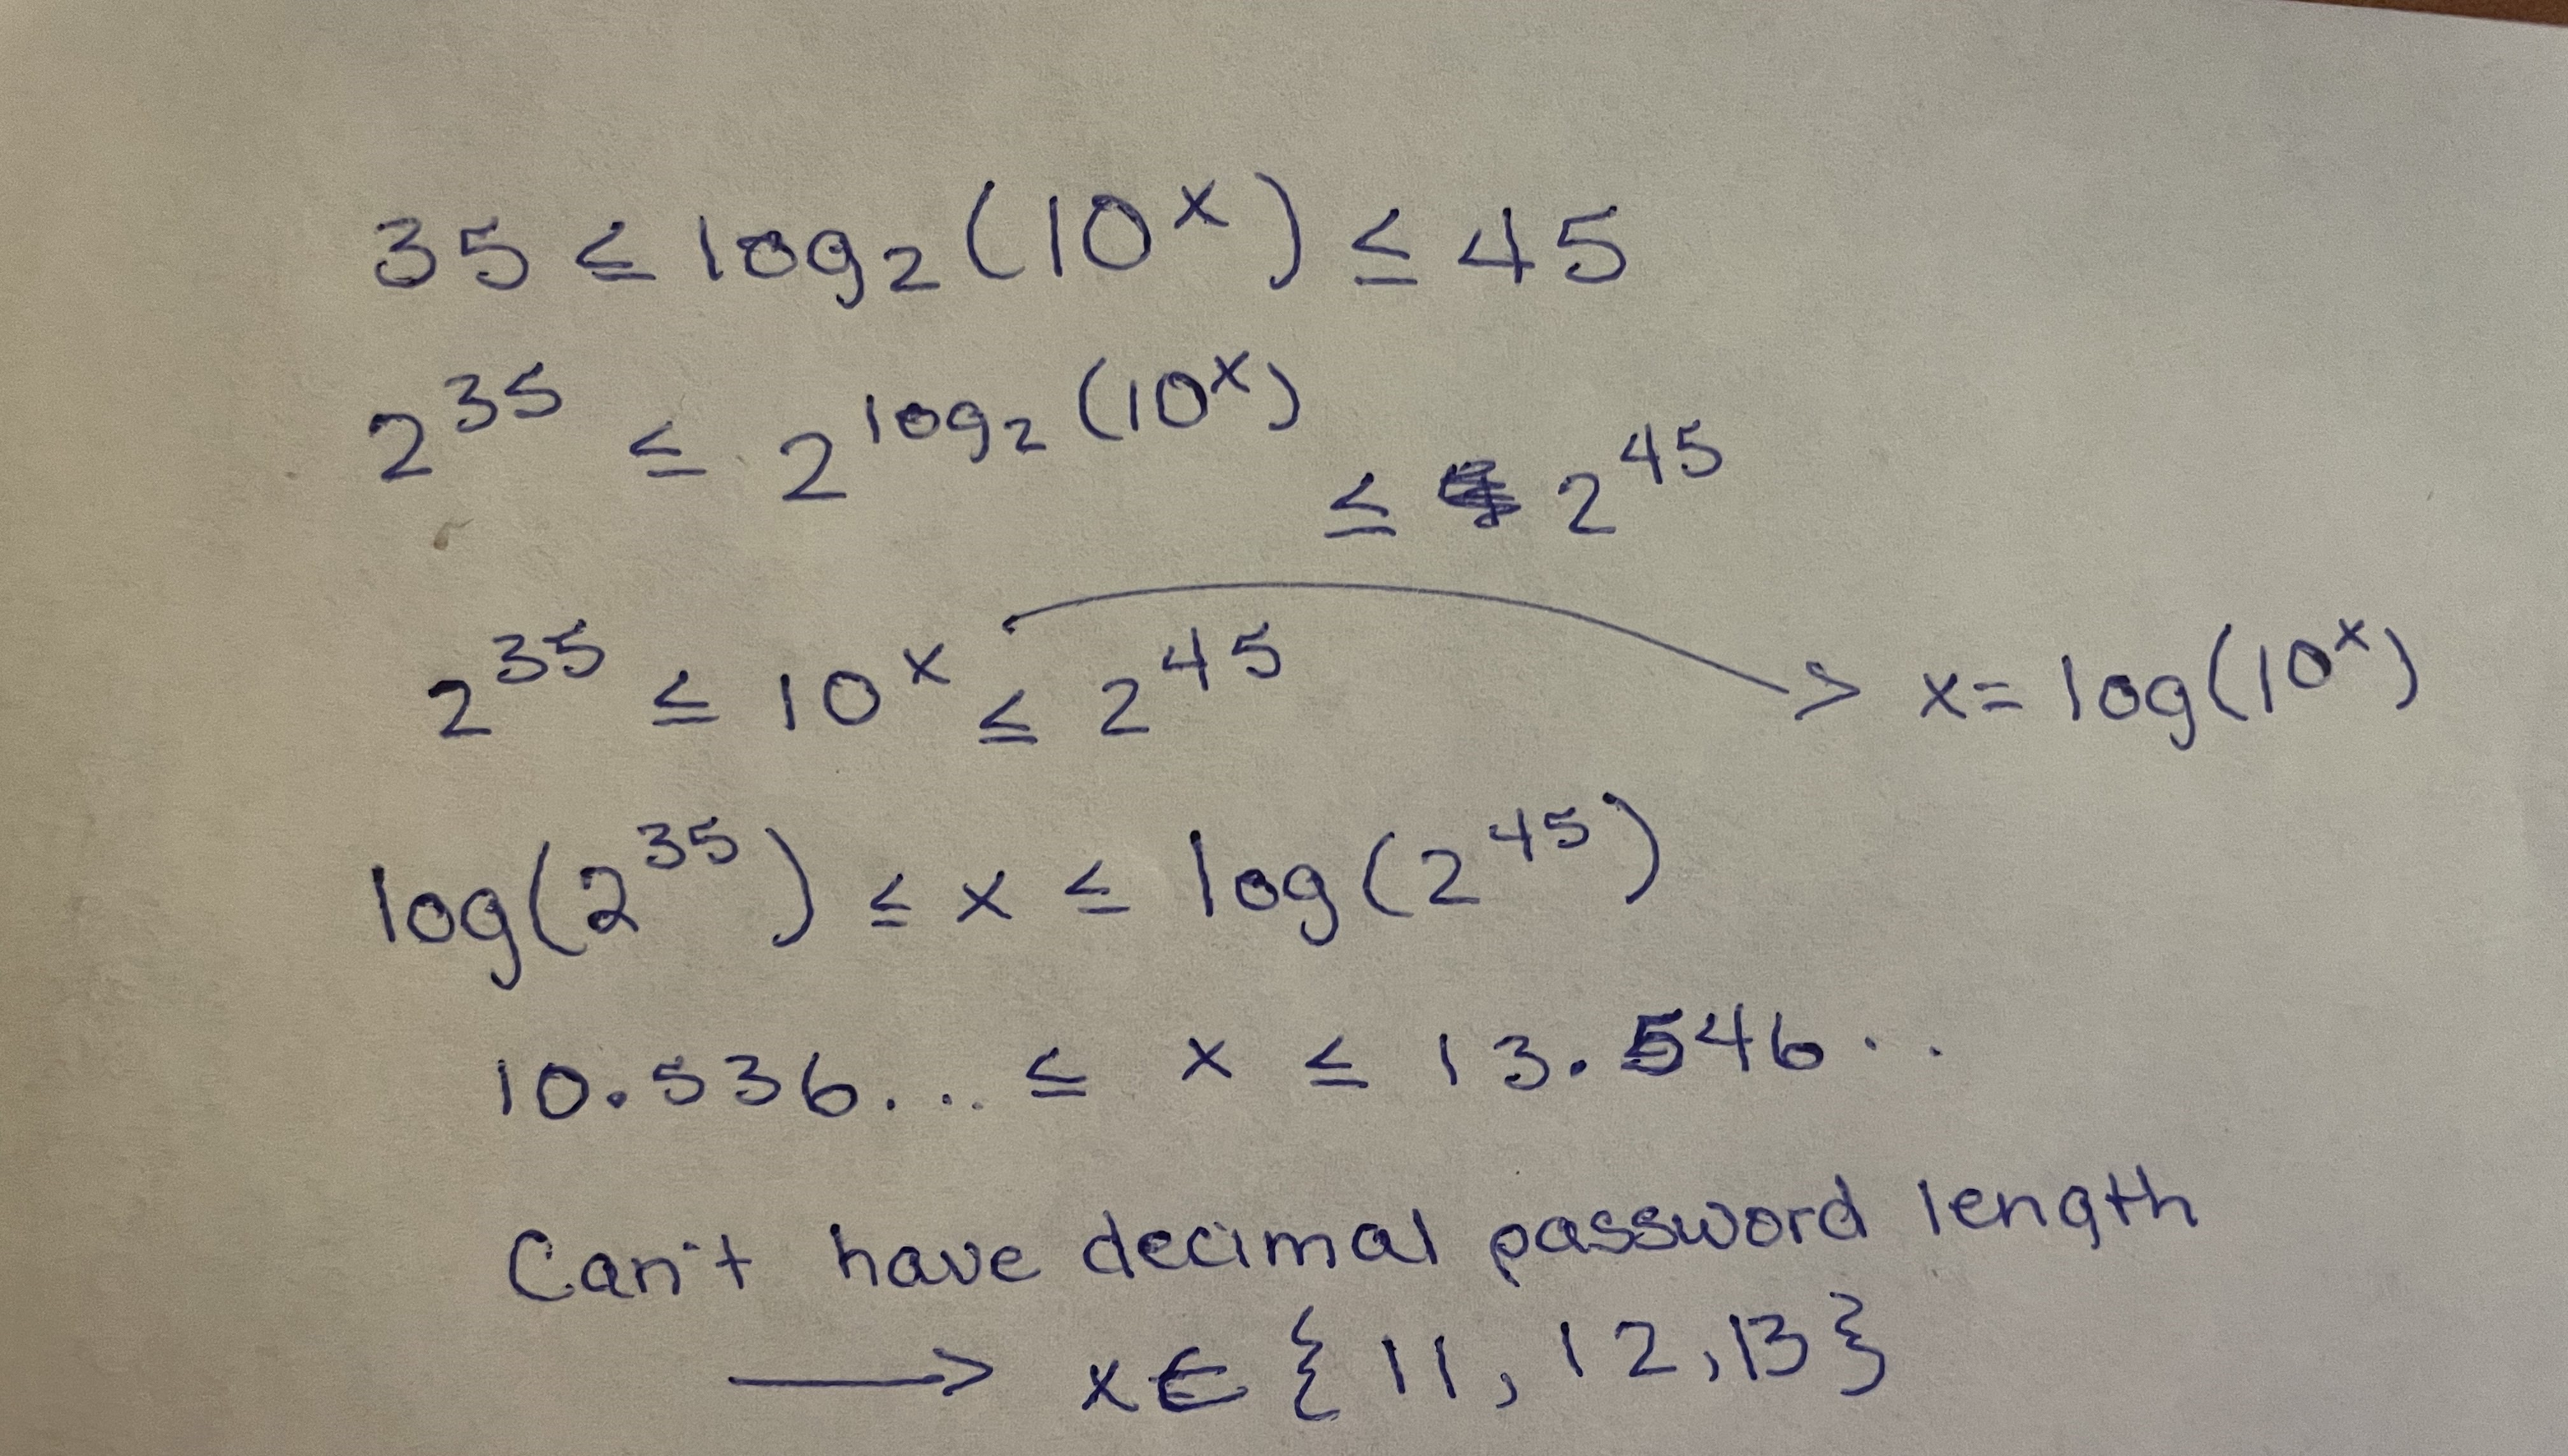 35 ≤ log₂(10ˣ) ≤ 45
2³⁵ ≤ 2^log₂(10ˣ) ≤ 2⁴⁵
2³⁵ ≤ 10ˣ ≤ 2⁴⁵ → x = log(10ˣ)
log(2³⁵) ≤ x ≤ log(2⁴⁵)
10.536... ≤ x ≤ 13.546..
Can't have decimal password length
→ x ∈ {11, 12, 13}